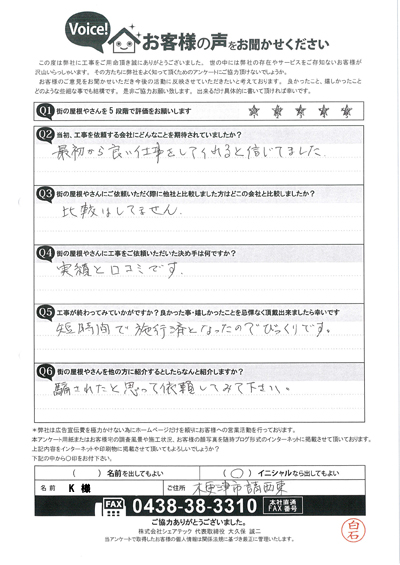 Voice!
お客様の声をお聞かせください
この度は弊社に工事をご用命頂き誠にありがとうございました。世の中には弊社の存在やサービスをご存知ないお客様が
沢山いらっしゃいます。その方たちに弊社をよく知って頂くためのアンケートにご協力頂けないでしょうか。
お客様のご意見をお聞かせいただき今後の活動に反映させていただきたいと考えております。良かったこと、嬉しかったこと
どのような些細な事でも結構です。是非ご協力お願い致します。出来るだけ具体的に書いて頂ければ幸いです。
Q1 街の屋根やさんを5段階で評価をお願いします ★ ★ ★ ★ ★
Q2 当初、工事を依頼する会社にどんなことを期待されていましたか?
最初から良い仕事をしてくれると信じてました.
Q3 街の屋根やさんにご依頼いただく際に他社と比較しました方はどこの会社と比較しましたか?
比較はしてません.
Q4 街の屋根やさんに工事をご依頼いただいた決め手は何ですか?
実績と口コミです.
Q5 工事が終わってみていかがですか?良かった事・嬉しかったことを忌憚なく頂戴出来ましたら幸いです
短時間で施行済となったのでびっくりです。
Q6 街の屋根やさんを他の方に紹介するとしたらなんと紹介しますか?
騙されたと思って依頼してみて下さい。
*弊社は広告宣伝費を極力かけない為にホームページだけを頼りにお客様への営業活動を行っております。
本アンケート用紙またはお客様宅の調査風景や施工状況、お客様の顔写真を随時ブログ形式のインターネットに掲載させて頂いております。
上記内容をインターネットや印刷物に掲載させて頂いてもよろしいでしょうか?
下記の中から○印をお付け下さい。
( )名前を出してもよい (○)イニシャルなら出してもよい
名前 K 様 ご住所 木更津市請西東
FAX 0438-38-3310 本社直通 FAX番号
ご協力ありがとうございました。
株式会社シェアテック 代表取締役 大久保 誠二
当アンケートで取得したお客様の個人情報は関係法規に基づき厳正に管理いたします。
白石